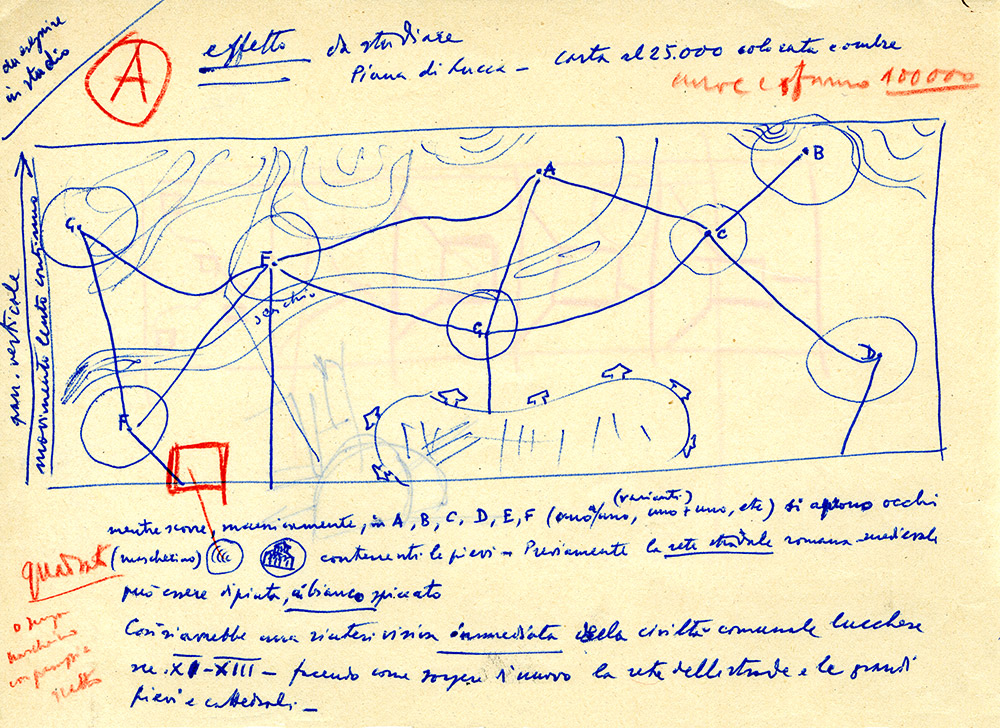 da eseguire
in studio
A
effetto da studiare
Piana di Lucca – carta al 25.000 colorata e ombre
100000
pan. verticale
movimento lento continuo
G.
F.
serchio
A
B
C
G.
D
F
mentre scorre, macchinamente, in A, B, C, D, E, F (uno a uno, uno + uno, etc) si aprono occhi
(varianti)
(mascherino) contenenti le pievi – Previamente la rete stradale romana-medievale
quadrato
può essere dipinta, a bianco spiccato
Così si avrebbe una sintesi visiva immediata della civiltà comunale lucchese
mascherino
netto
XI–XIII – facendo come sorgere di nuovo la rete delle strade e le grandi
pievi e cattedrali. –